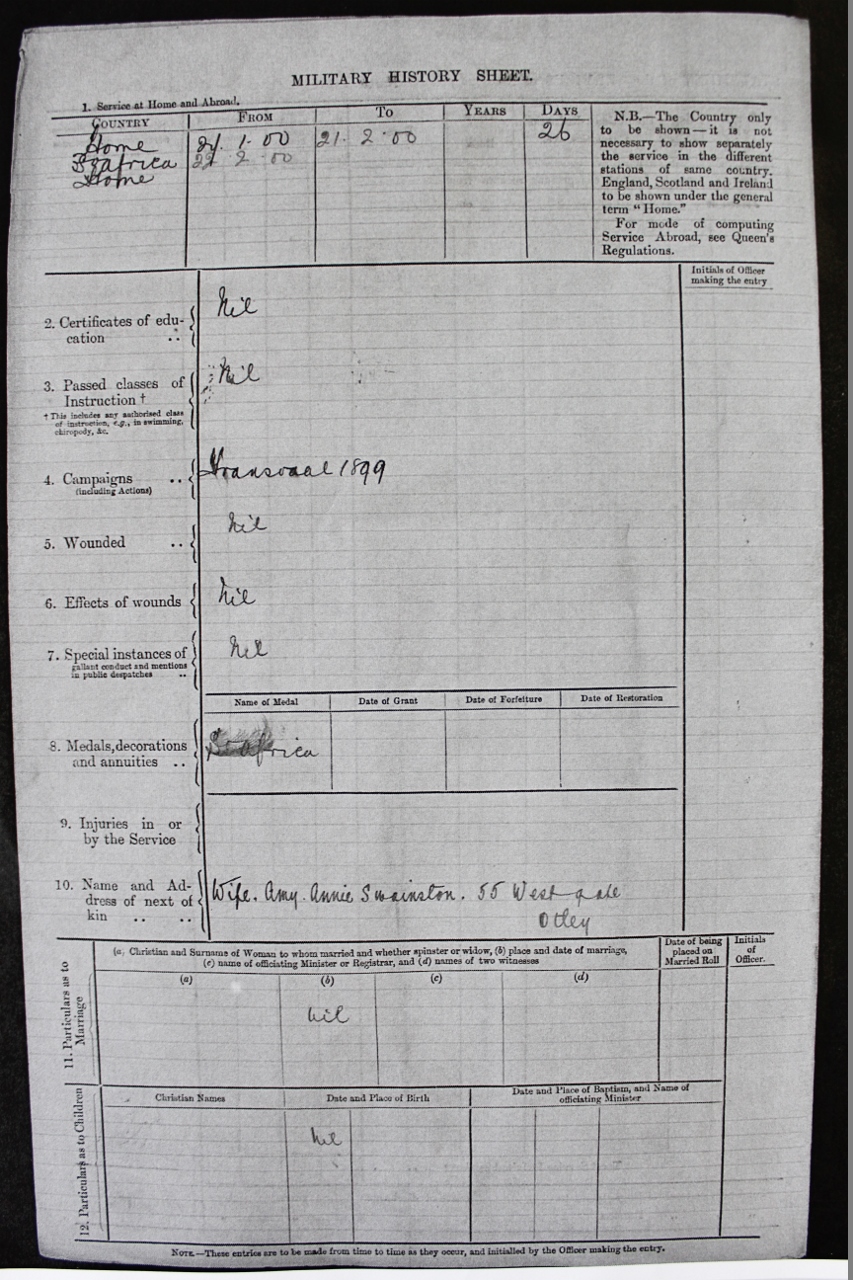 MILITARY HISTORY SHEET.
1. Service at Home and Abroad.
COUNTRY FROM TO YEARS DAYS
Home 1. 00 21. 2. 00 26
S Africa 22 2 00
Home
N.B.—The Country only
to be shown—it is not
necessary to show separately
the service in the different
stations of same country.
England, Scotland and Ireland
to be shown under the general
term “Home.”
For mode of computing
Service Abroad, see Queen's
Regulations.
Initials of Officer
making the entry
2. Certificates of edu-
cation ..
Nil
3. Passed classes of
Instruction †
† This includes any authorised class
of instruction, e.g., in swimming,
chiropody, &c.
Nil
4. Campaigns ..
(including Actions)
Transvaal 1899
5. Wounded ..
Nil
6. Effects of wounds
Nil
7. Special instances of
gallant conduct and mentions
in public despatches ..
Nil
Name of Medal Date of Grant Date of Forfeiture Date of Restoration
8. Medals, decorations
and annuities ..
S Africa
9. Injuries in or
by the Service
10. Name and Ad-
dress of next of
kin .. ..
Wife. Amy. Annie Swainston. 55 Westgate
Otley
11. Particulars as to
Marriage
(a) Christian and Surname of Woman to whom married and whether spinster or widow, (b) place and date of marriage,
(c) name of officiating Minister or Registrar, and (d) names of two witnesses
Date of being
placed on
Married Roll
Initials
of
Officer.
(a) (b) (c) (d)
nil
12. Particulars as to Children
Christian Names Date and Place of Birth
Date and Place of Baptism, and Name of
officiating Minister
nil
NOTE.—These entries are to be made from time to time as they occur, and initialled by the Officer making the entry.